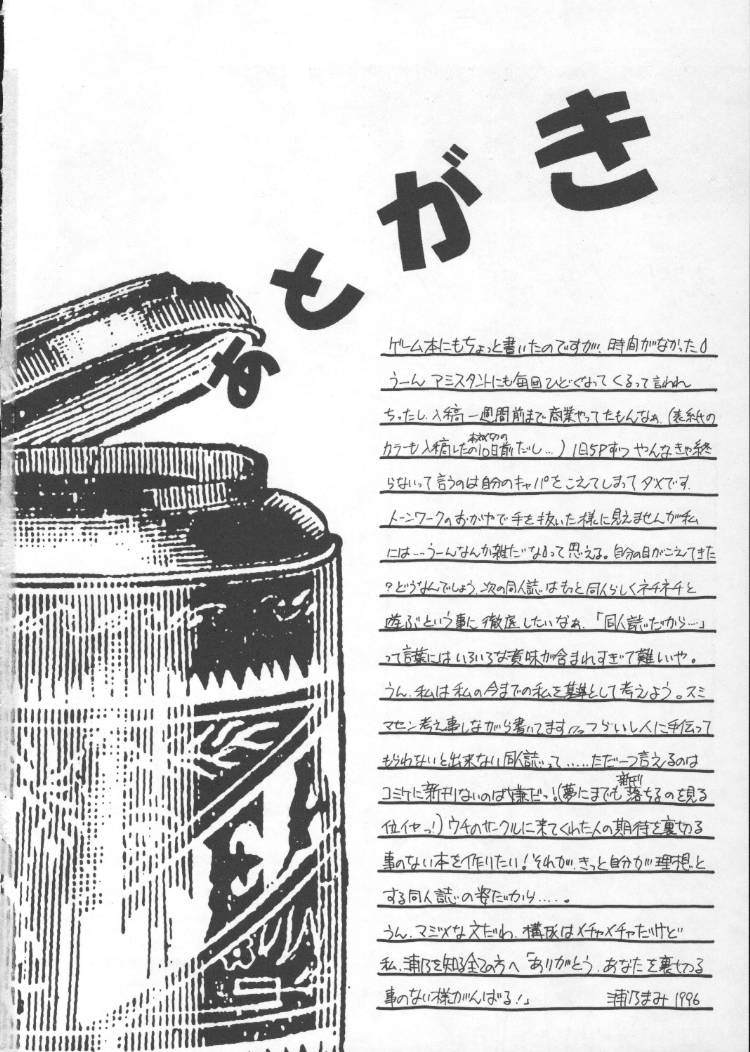 あとがき
ゲーム本にもちょっと書いたのですが、時間がなかった
うーん アシスタントにも毎回ひどくなってくるって言われ
ちったし、入稿一週間前まで商業やってたもんなぁ、(表紙の
カラーも入稿したの10日前だし…)1日5Pずつ やんなきゃ終
らないって言うのは自分のキャパをこえてしまってダメです。
トーンワークのおかげで手を抜いた様に見えませんが私
には…うーんなんか雑だなって思える。自分の目がこえてきた
?どうなんでしょう、次の同人誌はもっと同人らしくネチネチと
遊ぶという事に徹底したいなぁ、「同人誌だから…」
って言葉にはいろいろな意味が含まれすぎて難しいや。
うん、私は私の今までの私を基準として考えよう。スミ
マセン考え事しながら書いてます つらいし人に手伝って
もらわないと出来ない同人誌って……ただ一つ言えるのは
コミケに新刊ないのは嫌だっ!(夢にまでも新刊落ちるのを見る
位イヤっ!)ウチのサークルに来てくれた人の期待を裏切る
事のない本を作りたい!それが、きっと自分が理想と
する同人誌の姿だから……。
うん、マジメな文だわ、構成はメチャメチャだけど
私、浦乃を知る全ての方へ「ありがとう、あなたを裏切る
事のない様がんばる!」 浦乃まみ 1996